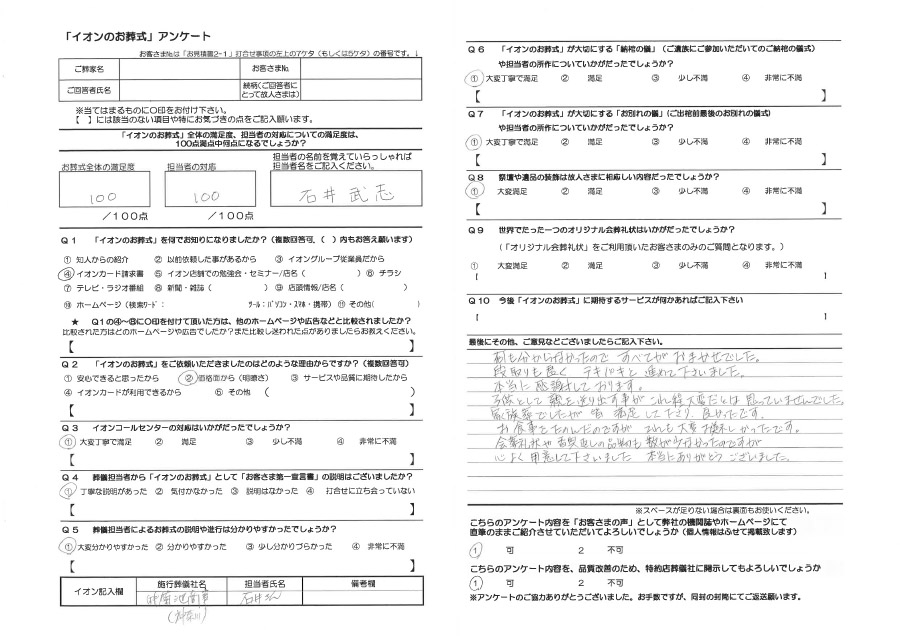 「イオンのお葬式」アンケート
お客さま№は「お見積書2-1」打合せ事項の左上の7ケタ（もしくは5ケタ）の番号です。↓
ご葬家名 お客さま№
ご回答者氏名 続柄(ご回答者にとって故人さまは)
※当てはまるものに○印をお付け下さい。
【　】には該当のない項目や特にお気づきの点をご記入願います。
「イオンのお葬式」全体の満足度、担当者の対応についての満足度は、
100点満点中何点になるでしょうか？
お葬式全体の満足度 担当者の対応 担当者の名前を覚えていらっしゃれば
担当者名をご記入ください。
100 100 石井 武志
／100点 ／100点
Q1 「イオンのお葬式」を何でお知りになりましたか？（複数回答可、（　）内もお答え願います）
① 知人からの紹介 ② 以前依頼した事があるから ③ イオングループ従業員だから
④ イオンカード請求書 ⑤ イオン店舗での勉強会・セミナー/店名（　） ⑥ チラシ
⑦ テレビ・ラジオ番組 ⑧ 新聞・雑誌（　） ⑨ 店頭情報/店名（　）
⑩ ホームページ（検索ﾜｰﾄﾞ： ﾂｰﾙ：ﾊﾟｿｺﾝ・ｽﾏﾎ・携帯） ⑪ その他（　）
★ Q1の④～⑧に○印を付けて頂いた方は、他のホームページや広告などと比較されましたか？
比較された方はどのホームページや広告でしたか？また比較し迷われた点がありましたらお教えください。
【　】
Q2 「イオンのお葬式」をご依頼いただきましたのはどのような理由からですか？（複数回答可）
① 安心できると思ったから ② 価格面から（明瞭さ） ③ サービスや品質に期待したから
④ イオンカードが利用できるから ⑤ その他（　）
【　】
Q3 イオンコールセンターの対応はいかがだったでしょうか？
① 大変丁寧で満足 ② 満足 ③ 少し不満 ④ 非常に不満
【　】
Q4 葬儀担当者から「イオンのお葬式」として「お客さま第一宣言書」の説明はございましたか？
① 丁寧な説明があった ② 気付かなかった ③ 説明はなかった ④ 打合せに立ち会っていない
【　】
Q5 葬儀担当者によるお葬式の説明や進行は分かりやすかったでしょうか？
① 大変分かりやすかった ② 分かりやすかった ③ 少し分かりづらかった ④ 非常に不満
【　】
イオン記入欄 施行葬儀社名 担当者氏名 備考欄
石井さん
（神奈川）
Q6 「イオンのお葬式」が大切にする「納棺の儀」（ご遺族にご参加いただいてのご納棺の儀式）
や担当者の所作についていかがだったでしょうか？
① 大変丁寧で満足 ② 満足 ③ 少し不満 ④ 非常に不満
【　】
Q7 「イオンのお葬式」が大切する「お別れの儀」（ご出棺前最後のお別れの儀式）
や担当者の所作についていかがだったでしょうか？
① 大変丁寧で満足 ② 満足 ③ 少し不満 ④ 非常に不満
【　】
Q8 祭壇や遺品の装飾は故人さまに相応しい内容だったでしょうか？
① 大変満足 ② 満足 ③ 少し不満 ④ 非常に不満
【　】
Q9 世界でたった一つのオリジナル会葬礼状はいかがだったでしょうか？
（「オリジナル会葬礼状」をご利用頂いたお客さまのみのご質問となります。）
① 大変満足 ② 満足 ③ 少し不満 ④ 非常に不満
【　】
Q10 今後「イオンのお葬式」に期待するサービスが何かあればご記入下さい
【　】
最後にその他、ご意見などございましたらご記入下さい。
何も分からなかったので すべてが おまかせでした。
段取りも良く テキパキと 進めて下さいました。
本当に 感謝しております。
子供として 親を送り出す事が これ程大変だとは 思っていませんでした。
家族葬でしたが 皆 満足 して下さり 良かったです。
お食事をたのんだのですが これも 大変美味しかったです。
会葬礼状や香典返しの品物も 数が少なかったのですが
心よく用意して下さいました 本当にありがとう ございました。
※スペースが足りない場合は裏面もお使いください。
こちらのアンケート内容を「お客さまの声」として弊社の機関誌やホームページにて
直筆のままご紹介させていただいてよろしいでしょうか（個人情報はふせて掲載致します）
1 可 2 不可
こちらのアンケート内容を、品質改善のため、特約店葬儀社に開示してもよろしいでしょうか
1 可 2 不可
※アンケートのご協力ありがとうございました。お手数ですが、同封の封筒にてご返送願います。